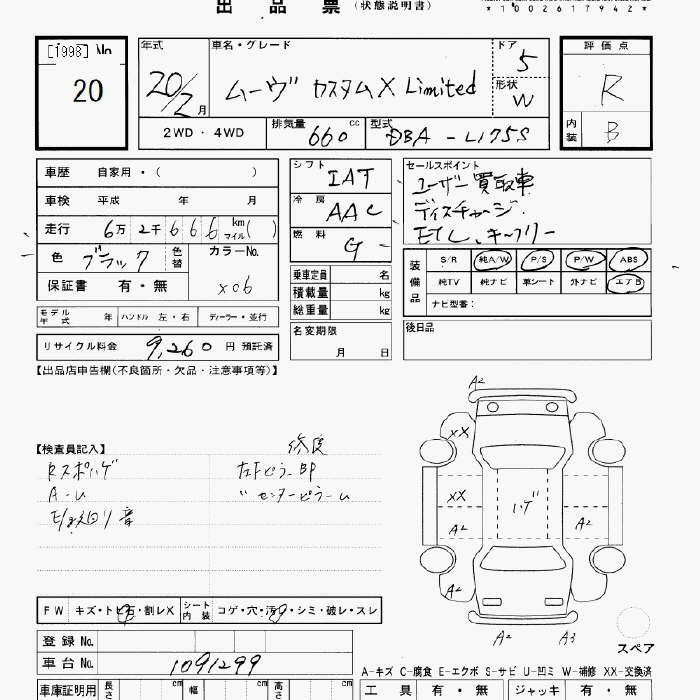 出 品 票 (状態説明書)
*1002617942*
[1998] No
20
年式
20/2月
車名・グレード
ムーヴ カスタムX Limited
ドア
5
形状
W
評価点
R
内装
B
2WD ・ 4WD
排気量 660 cc
型式 DBA - L175S
車歴 自家用・( )
車検 平成 年 月
走行 6万 2千 6 6 6 km マイル ( )
色 ブラック
色替
カラーNo.
X06
保証書 有・無
モデル年式 年 ハンドル 左・右 ディーラー・並行
リサイクル料金 9,260 円 預託済
シフト
IAT
冷房
AAC
燃料
G
乗車定員 名
積載量 kg
総重量 kg
名変期限
月 日
セールスポイント
ユーザー買取車
ディスチャージ.
ETC、キーフリー
装備品
S/R 純A/W P/S P/W ABS
純TV 純ナビ 革シート 外ナビ エアB
ナビ型番:
後日品
【出品店申告欄(不良箇所・欠品・注意事項等)】
【検査員記入】
修復
Rスポハゲ
左Fピラー BP
A-U
〃 センターピラー
E/g廻り音
A2
XX
XX
A2
A2
ハゲ
A2
A2
A3
スペア
FW キズ・トビ石・割レX
シート内装 コゲ・穴・汚レ・シミ・破レ・スレ
登録 No.
車台 No. 1091299
A-キズ C-腐食 E-エクボ S-サビ U-凹ミ W-補修 XX-交換済
車庫証明用 長さ cm 幅 cm 高さ cm
工具 有・無 ジャッキ 有・無